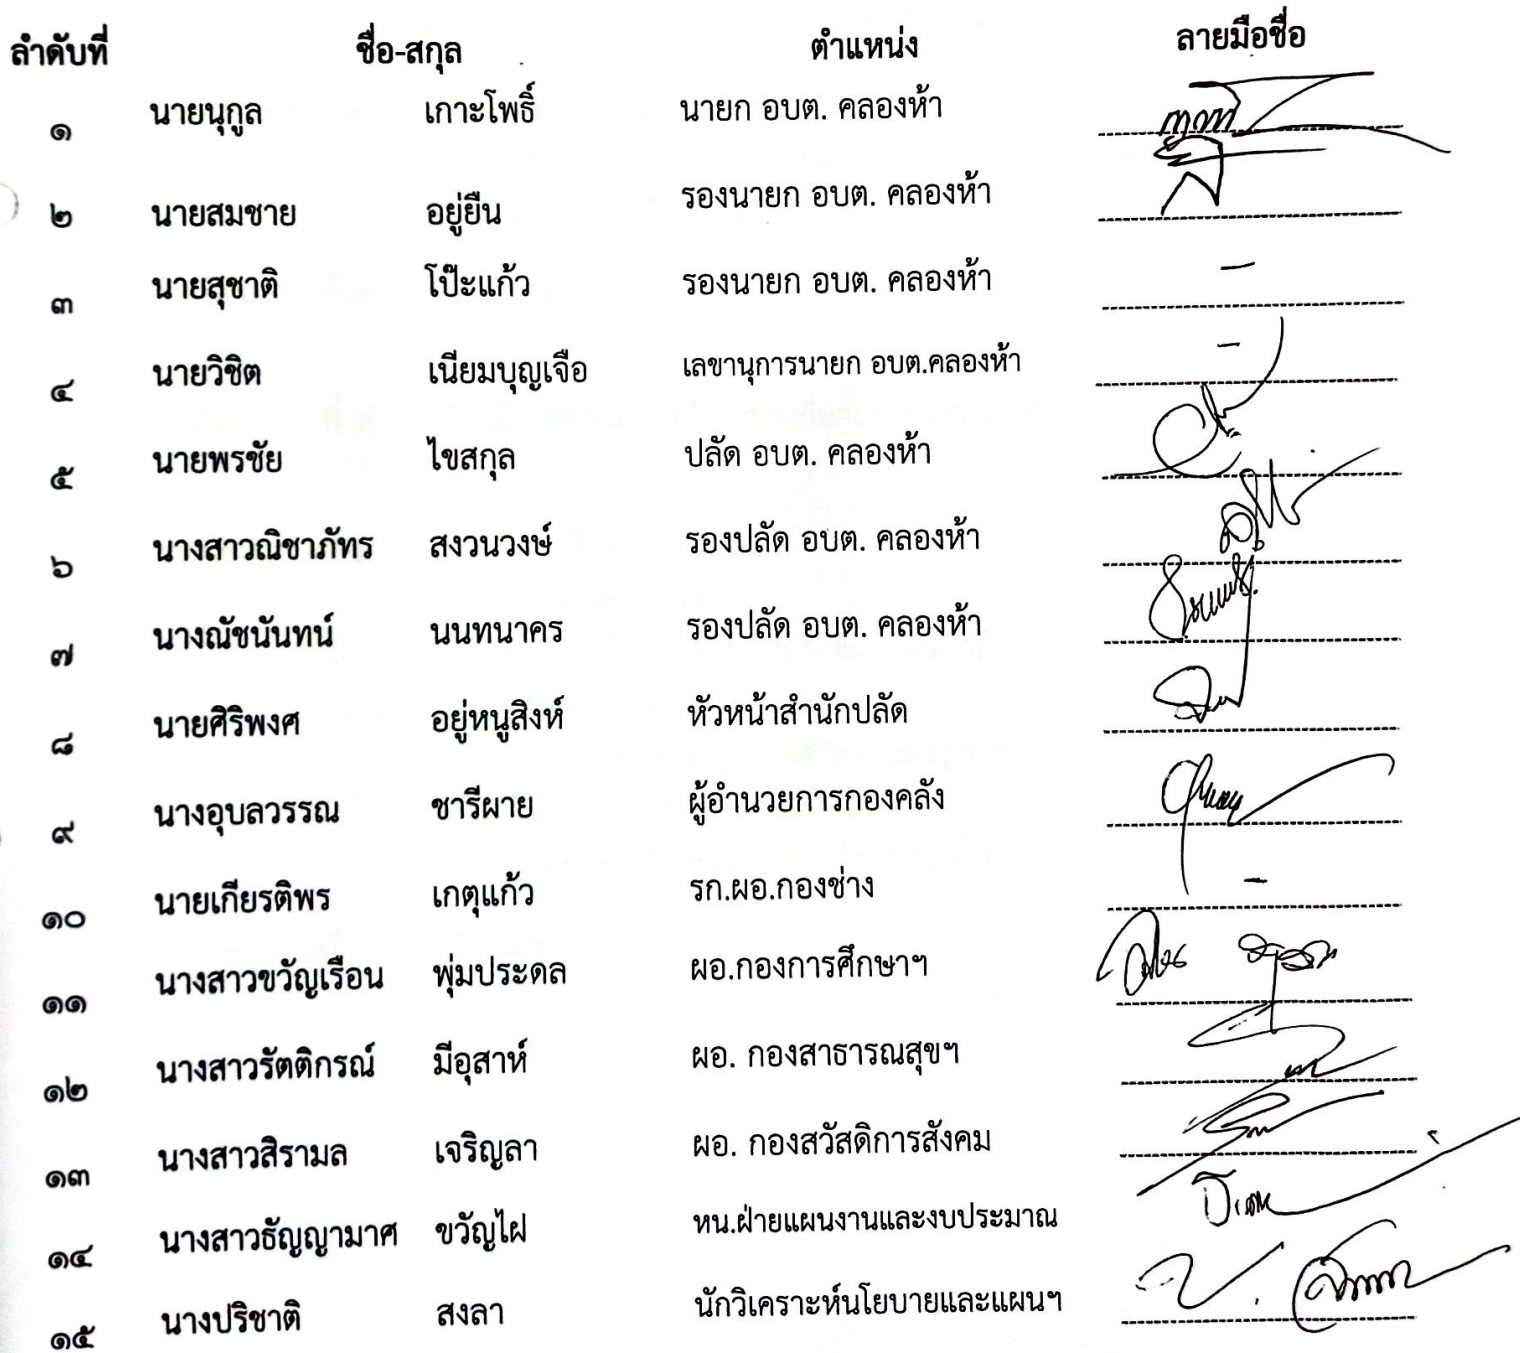 ลำดับที่ ชื่อ-สกุล ตำแหน่ง ลายมือชื่อ
๑ นายนุกูล เกาะโพธิ์ นายก อบต. คลองห้า
๒ นายสมชาย อยู่ยืน รองนายก อบต. คลองห้า
๓ นายสุชาติ โป๊ะแก้ว รองนายก อบต. คลองห้า -
๔ นายวิชิต เนียมบุญเจือ เลขานุการนายก อบต.คลองห้า -
๕ นายพรชัย ไขสกุล ปลัด อบต. คลองห้า
๖ นางสาวณิชาภัทร สงวนวงษ์ รองปลัด อบต. คลองห้า
๗ นางณัชนันทน์ นนทนาคร รองปลัด อบต. คลองห้า
๘ นายศิริพงศ อยู่หนูสิงห์ หัวหน้าสำนักปลัด
๙ นางอุบลวรรณ ชารีผาย ผู้อำนวยการกองคลัง
๑๐ นายเกียรติพร เกตุแก้ว รก.ผอ.กองช่าง -
๑๑ นางสาวขวัญเรือน พุ่มประดล ผอ.กองการศึกษาฯ
๑๒ นางสาวรัตติกรณ์ มีอุสาห์ ผอ. กองสาธารณสุขฯ
๑๓ นางสาวสิรามล เจริญลา ผอ. กองสวัสดิการสังคม
๑๔ นางสาวธัญญามาศ ขวัญไฝ หน.ฝ่ายแผนงานและงบประมาณ
๑๕ นางปริชาติ สงลา นักวิเคราะห์นโยบายและแผนฯ